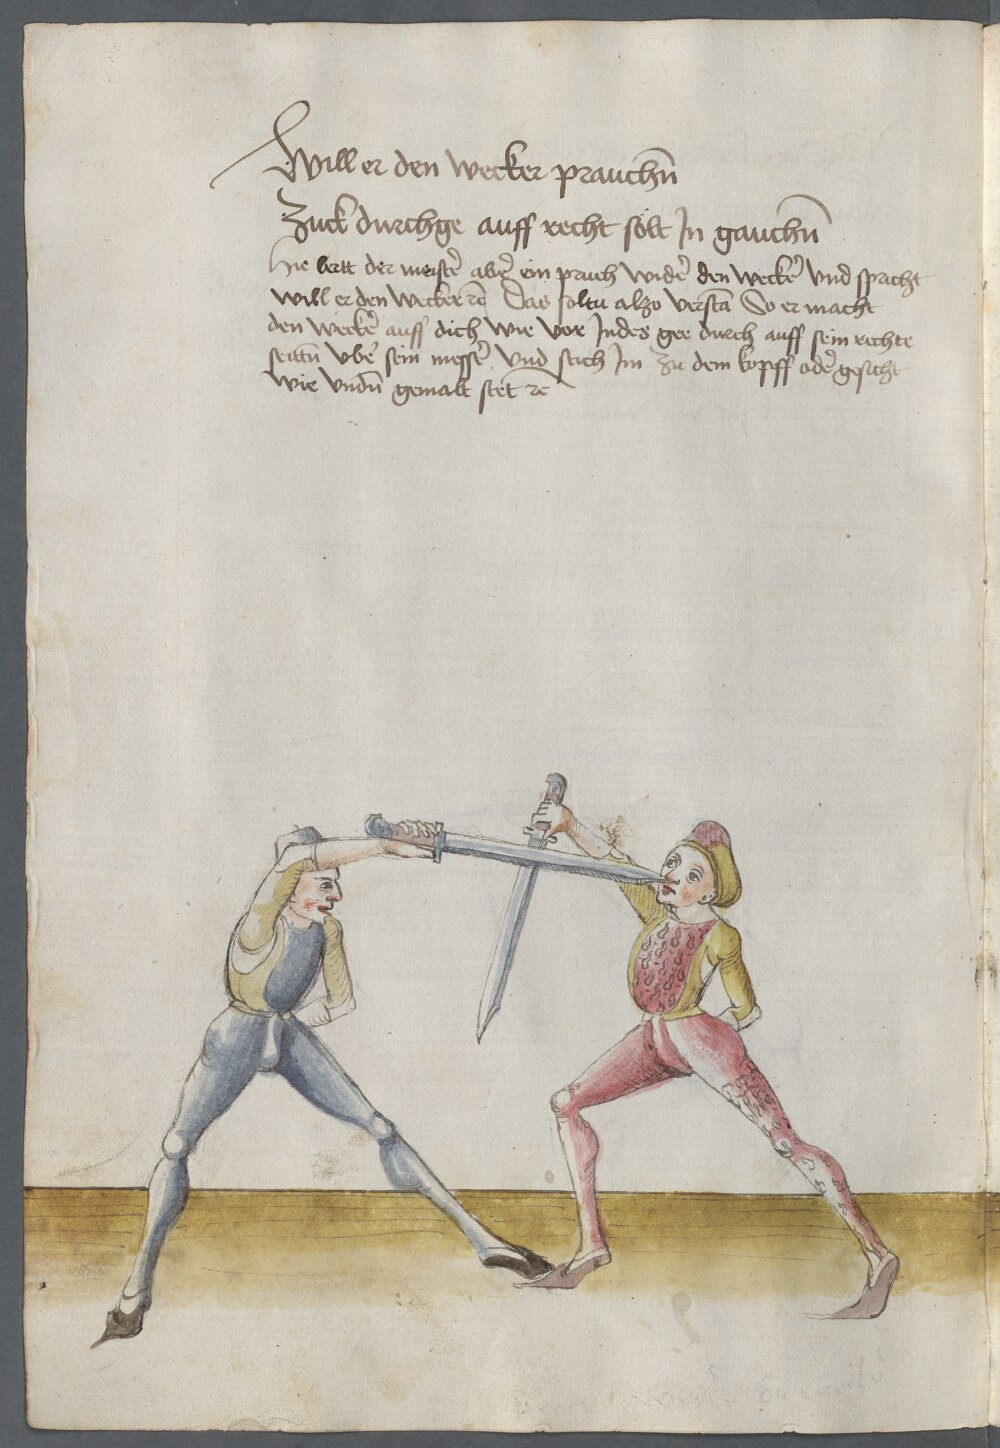 Will er den wecker prauchn̄
Zuck durchge auff recht solt In gauchn̄
Hie lertt der meister aber ein pruch wider den wecker Vnd spricht
will er den wecker ꝛc̄ Das soltu alzo versta So er macht
den wecker auff dich wie vor Indes gee durch auff sein rechte
seittn̄ vber sein messer Vnd stich Im zu dem kopff oder gesicht
wie vndn̄ gemalt stet ꝛc̄